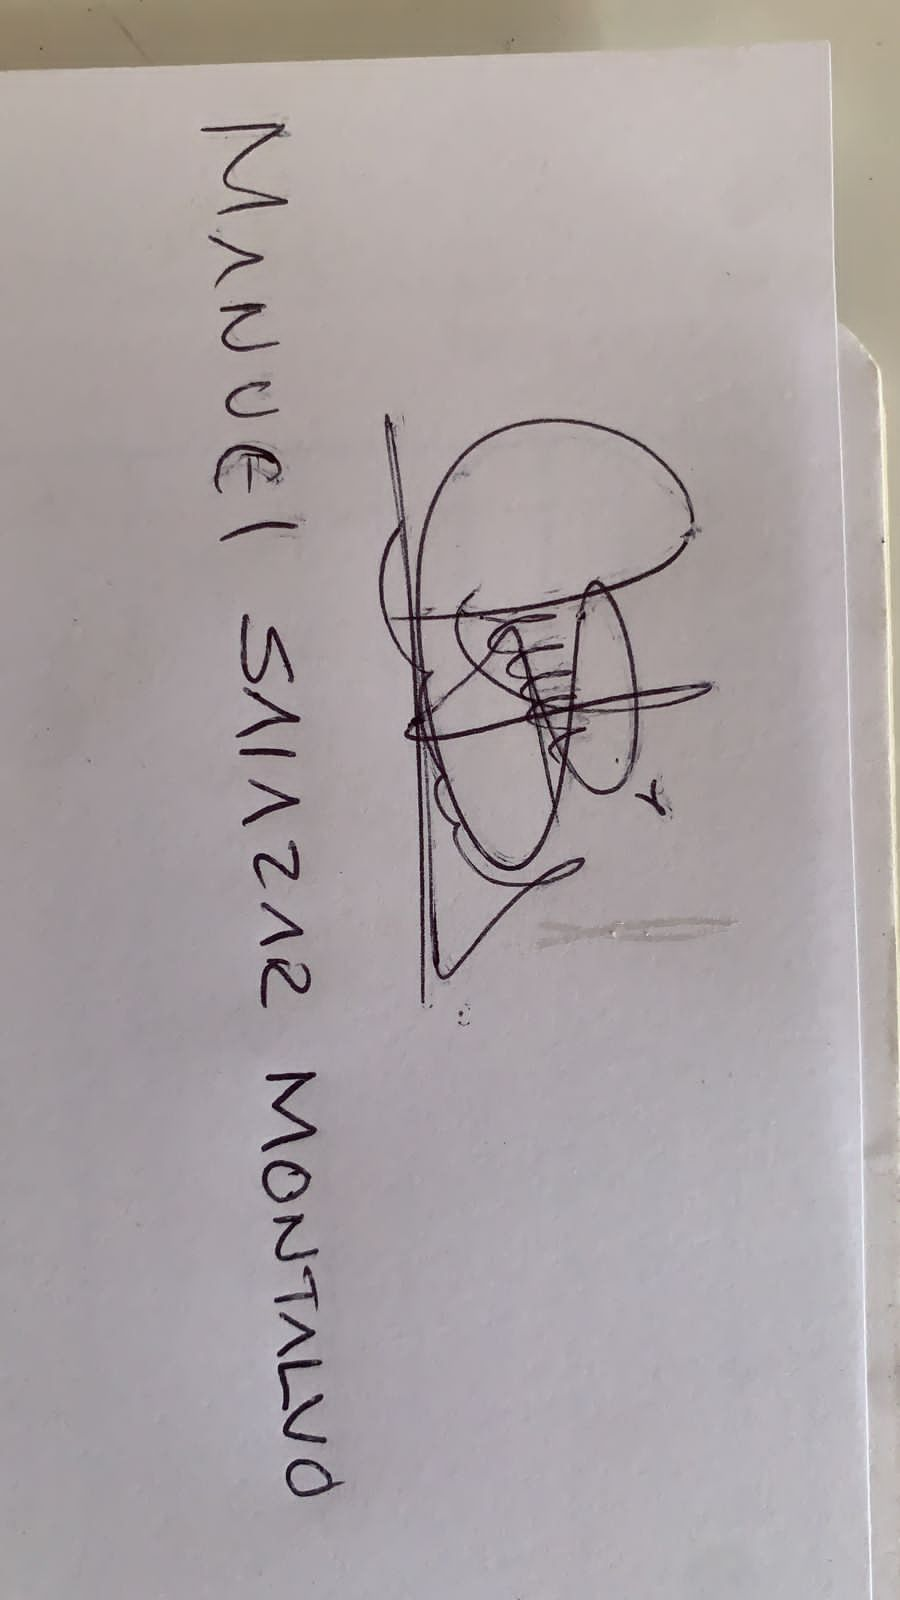 MANUEl SAlAZAR MONTALVO